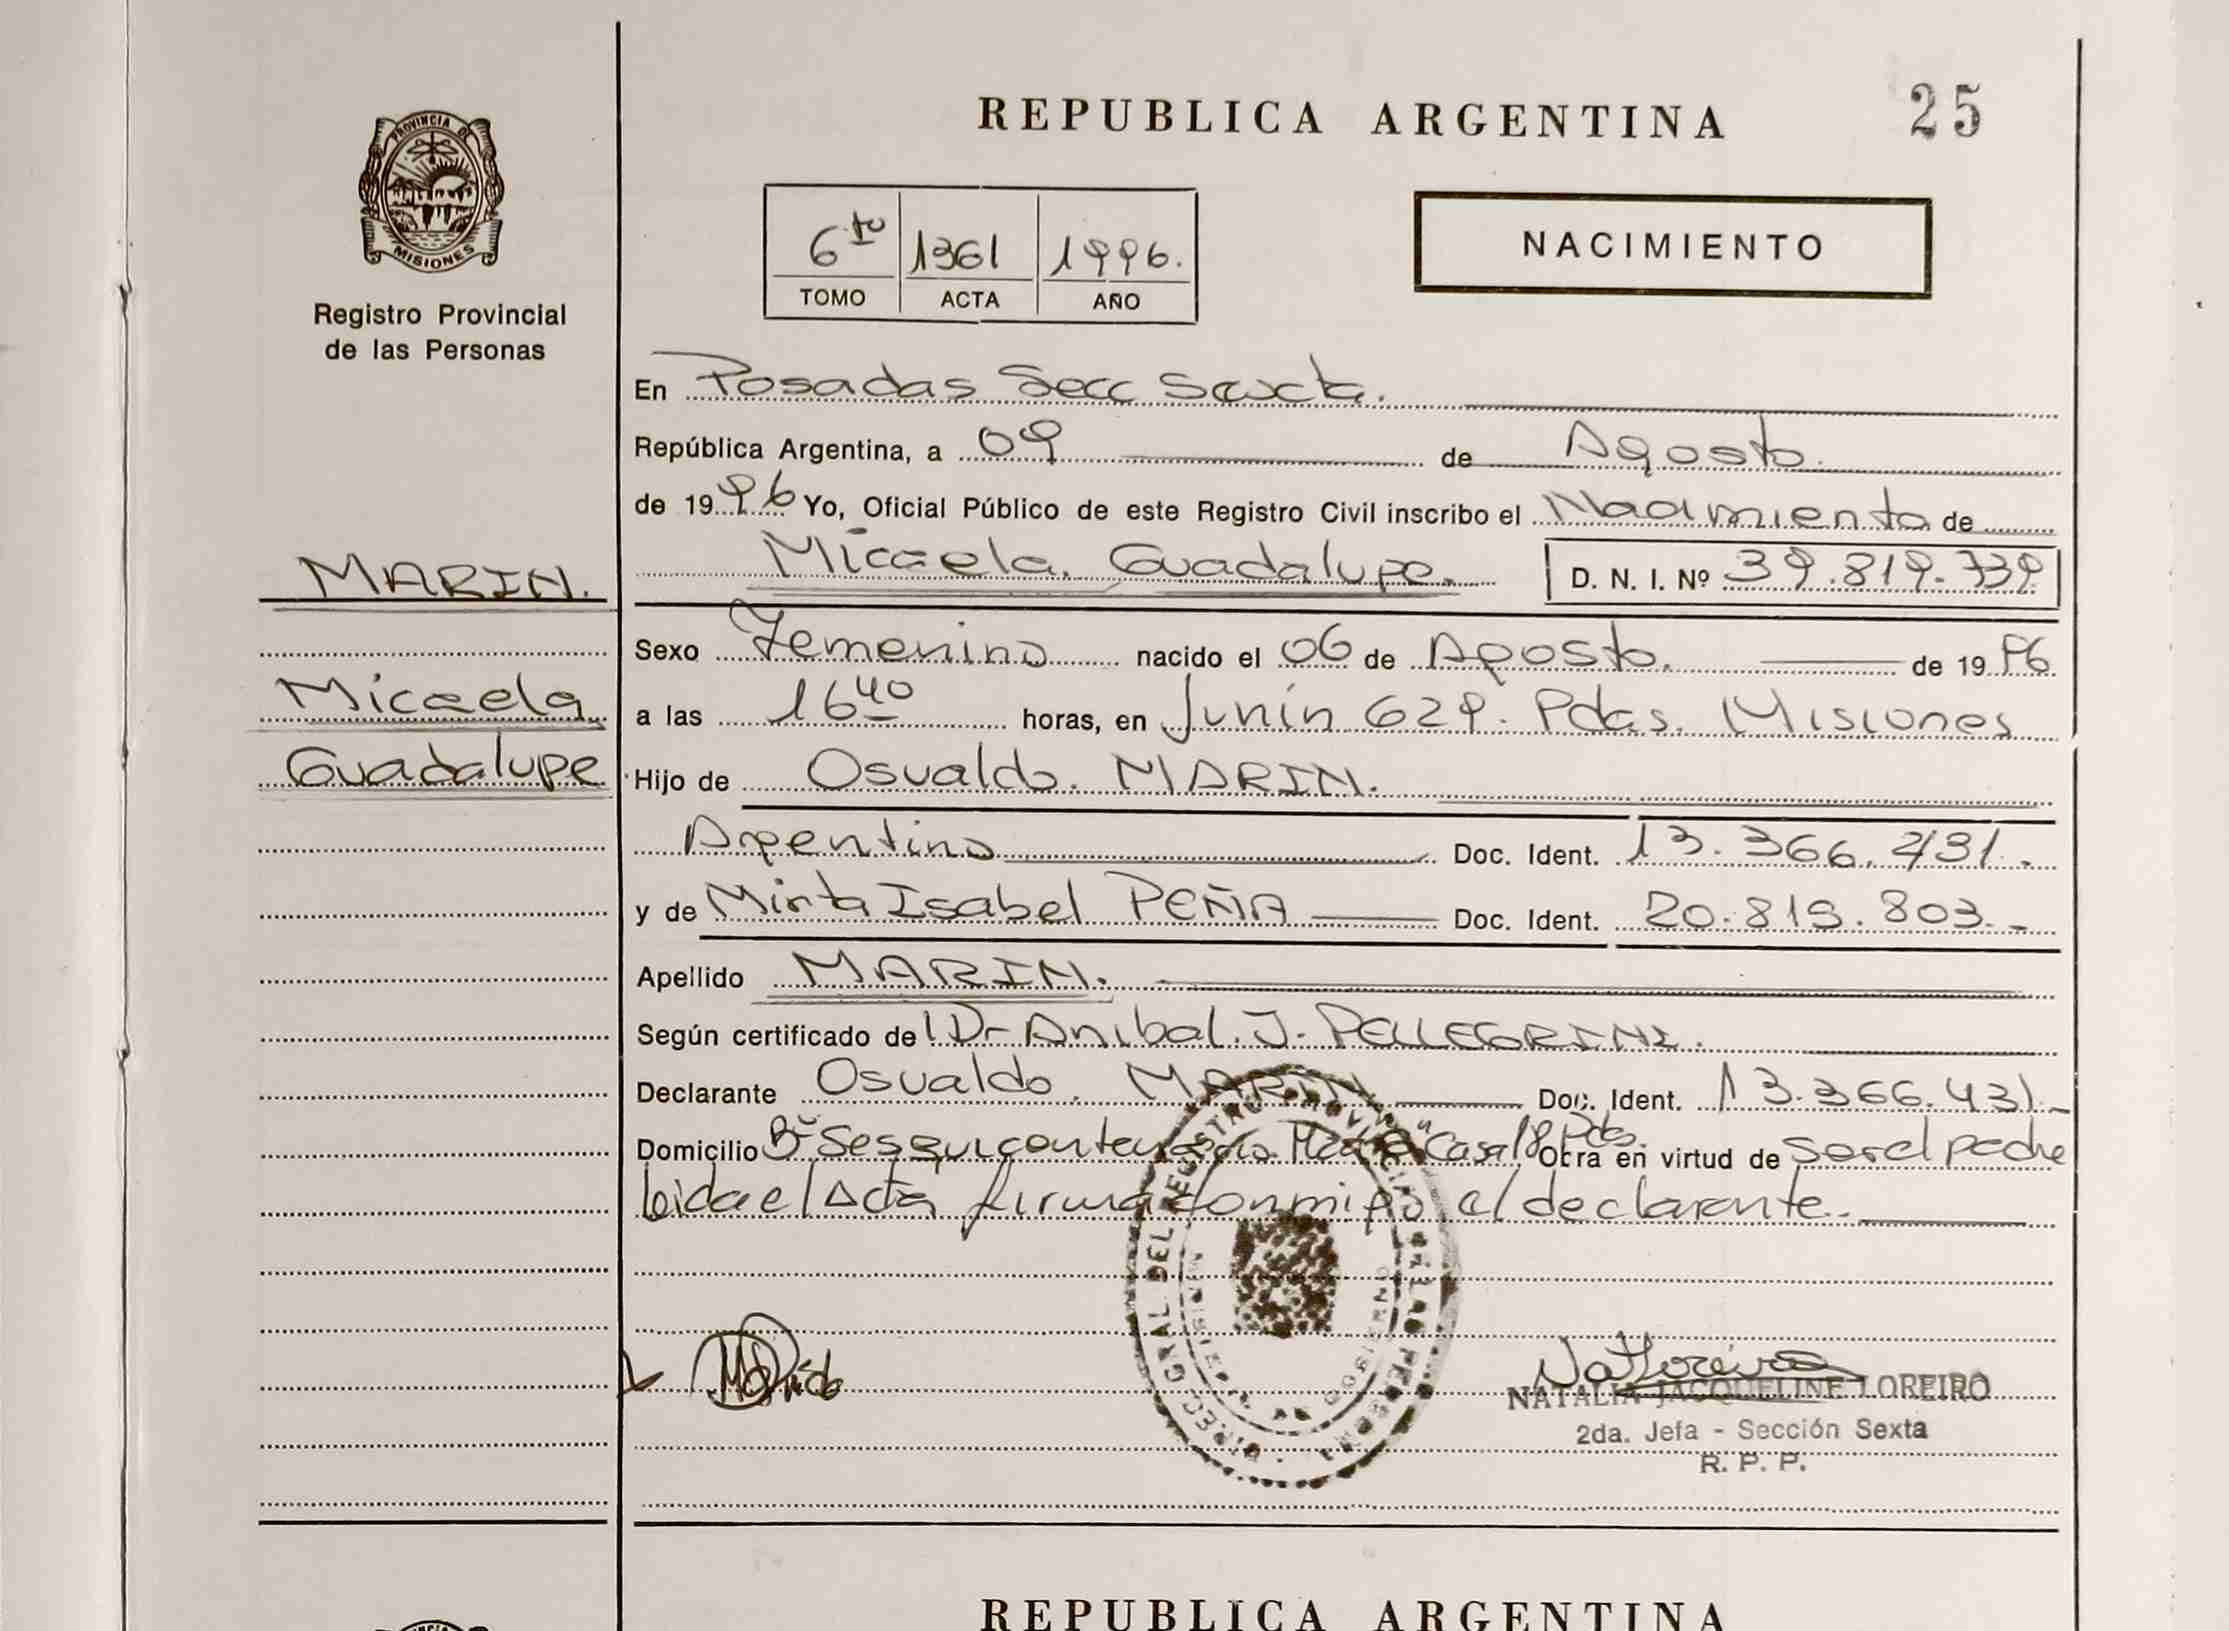 REPUBLICA ARGENTINA
25
PROVINCIA DE
MISIONES
Registro Provincial
de las Personas
6to 1361 1996.
TOMO ACTA AÑO
NACIMIENTO
En Posadas Secc Sexta.
República Argentina, a 09 de Agosto.
de 1996 Yo, Oficial Público de este Registro Civil inscribo el Nacimiento de
Micaela Guadalupe. D. N. I. Nº 39.819.739
MARIN.
Micaela
Guadalupe
Sexo Femenino nacido el 06 de Agosto. de 1996
a las 16 40 horas, en Junín 629. Pdas. Misiones
Hijo de Osvaldo. MARIN.
Argentino Doc. Ident. 13.366.431.
y de Mirta Isabel PEÑA Doc. Ident. 20.819.803.
Apellido MARIN.
Según certificado de Dr Anibal. J. PELLEGRINI.
Declarante Osvaldo. MARIN Doc. Ident. 13.366.431.
Domicilio Bº Sesquicentenario Casa 18 Pdas. Obra en virtud de ser el padre
leida el Acta firma conmigo el declarante.
DIREC. GRAL. DEL REGISTRO PROVINCIAL DE LAS PERSONAS
NATALIA JACQUELINE LOREIRO
2da. Jefa - Sección Sexta
R. P. P.
REPUBLICA ARGENTINA